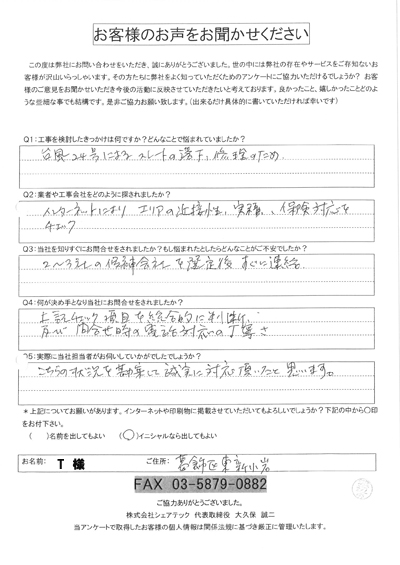 お客様のお声をお聞かせください
この度は弊社にお問い合わせをいただき、誠にありがとうございました。世の中には弊社の存在やサービスをご存知ないお
客様が沢山いらっしゃいます。その方たちに弊社をよく知っていただくためのアンケートにご協力いただけるでしょうか？ お客
様のご意見をお聞かせいただき今後の活動に反映させていただきたいと考えております。良かったこと、嬉しかったことどのよ
うな些細な事でも結構です。是非ご協力お願い致します。（出来るだけ具体的に書いていただければ幸いです）
Q1:工事を検討したきっかけは何ですか？どんなことで悩まれていましたか？
台風24号によるスレートの落下、修理のため.
Q2:業者や工事会社をどのように探されましたか？
インターネットにより エリアの近接性、実績、保険対応を
チェック
Q3:当社を知りすぐにお問合せをされましたか？もし悩まれたとしたらどんなことがご不安でしたか？
2〜3社の候補会社を選定後 すぐに連絡
Q4:何が決め手となり当社にお問合せをされましたか？
上記チェック項目を総合的に判断
及び 問合せ時の電話対応の丁寧さ
Q5:実際に当社担当者がお伺いしていかがでしたでしょうか？
こちらの状況を勘案し誠実に対応頂いたと思います。
＊上記についてお願いがあります。インターネットや印刷物に掲載させていただいてもよろしいでしょうか？下記の中から〇印
をお付下さい。
（　）名前を出してもよい　（〇）イニシャルなら出してもよい
お名前: T 様 ご住所: 葛飾区東新小岩
FAX 03-5879-0882
ご協力ありがとうございました。
株式会社シェアテック 代表取締役 大久保 誠二
当アンケートで取得したお客様の個人情報は関係法規に基づき厳正に管理いたします。